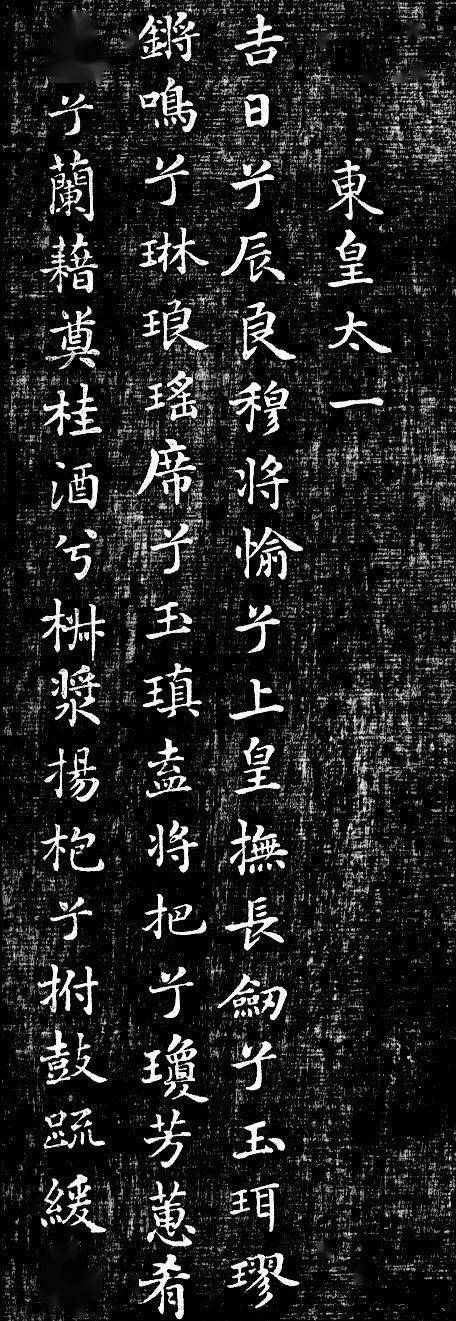 東皇太一
吉日兮辰良穆将愉兮上皇撫長劒兮玉珥璆
鏘鳴兮琳琅瑤席兮玉瑱盍将把兮瓊芳蕙肴
兮蘭藉奠桂酒兮椒漿揚枹兮拊鼓疏緩